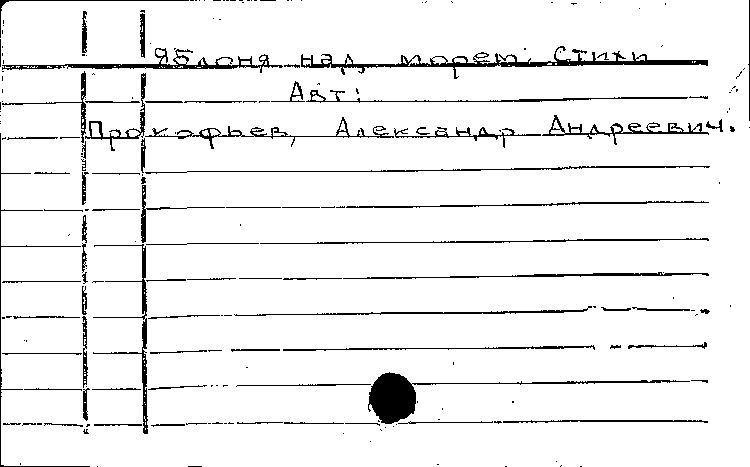 Яблоня над морем: Стихи
Авт:
Прокофьев, Александр Андреевич.